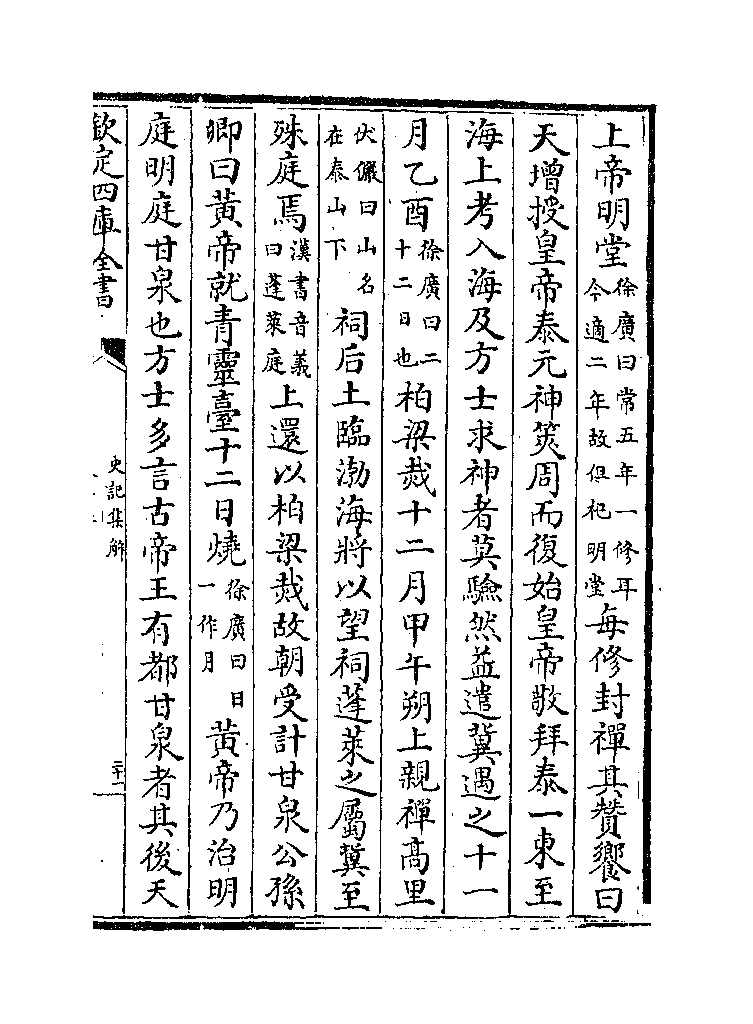 上帝明堂徐廣曰常五年一修耳今適二年故但祀明堂每修封禪其贊饗曰
天増授皇帝泰元神筴周而復始皇帝敬拜泰一東至
海上考入海及方士求神者莫驗然益遣冀遇之十一
月乙酉徐廣曰二十二日也柏梁烖十二月甲午朔上親禪高里
伏儼曰山名在泰山下祠后土臨渤海將以望祠蓬萊之屬冀至
殊庭焉漢書音義曰蓬萊庭上還以柏梁烖故朝受計甘泉公孫
卿曰黃帝就青靈臺十二日燒徐廣曰日一作月黃帝乃治明
庭明庭甘泉也方士多言古帝王有都甘泉者其後天
欽定四庫全書
史記集解